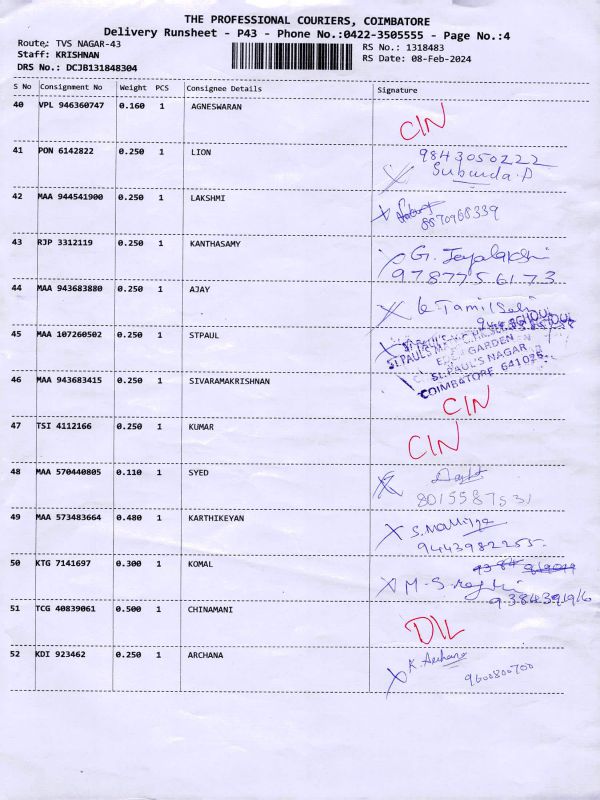 THE PROFESSIONAL COURIERS, COIMBATORE
Delivery Runsheet - P43 - Phone No.:0422-3505555 - Page No.:4
Route: TVS NAGAR-43
Staff: KRISHNAN
DRS No.: DCJB131848304
RS No.: 1318483
RS Date: 08-Feb-2024
S No Consignment No Weight PCS Consignee Details Signature
40 VPL 946360747 0.160 1 AGNESWARAN
CIN
41 PON 6142822 0.250 1 LION 9843050222
42 MAA 944541900 0.250 1 LAKSHMI
8870968339
43 RJP 3312119 0.250 1 KANTHASAMY G. Jeyalakshi
9787756173
44 MAA 943683880 0.250 1 AJAY
TamilSelvi
45 MAA 107260502 0.250 1 STPAUL
GARDEN
ST.PAUL'S NAGAR
COIMBATORE 641025.
46 MAA 943683415 0.250 1 SIVARAMAKRISHNAN
CIN
47 TSI 4112166 0.250 1 KUMAR
CIN
48 MAA 570440805 0.110 1 SYED
8015587531
49 MAA 573483664 0.480 1 KARTHIKEYAN
9443982255
50 KTG 7141697 0.300 1 KOMAL
M.S.
51 TCG 40839061 0.500 1 CHINAMANI
DIL
52 KDI 923462 0.250 1 ARCHANA K. Archana
9600800700